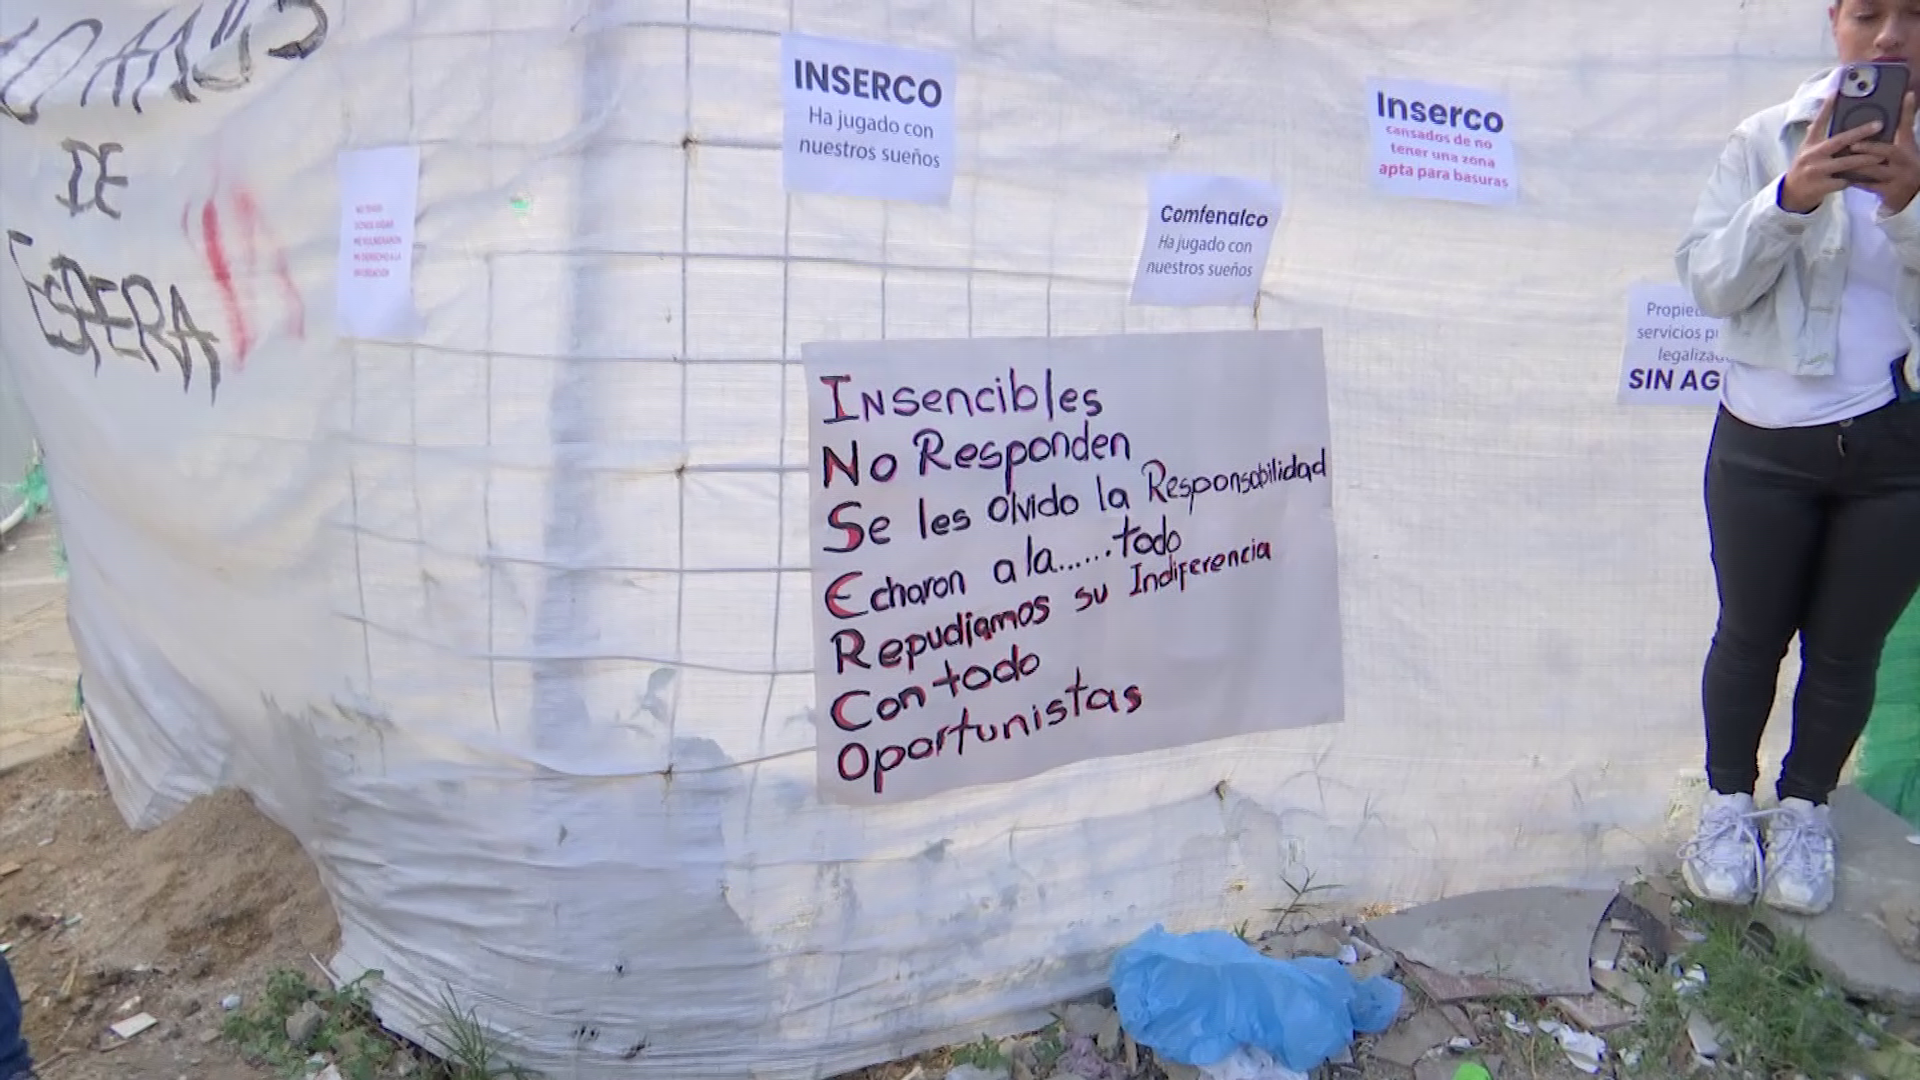 DE
ESPERA !!
INSERCO
Ha jugado con
nuestros sueños
Inserco
cansados de no
tener una zona
apta para basuras
Comfenalco
Ha jugado con
nuestros sueños
servicios
SIN
Insencibles
No Responden
Se les olvido la Responsabilidad
Echaron a la......todo
Repudiamos su Indiferencia
Con todo
Oportunistas